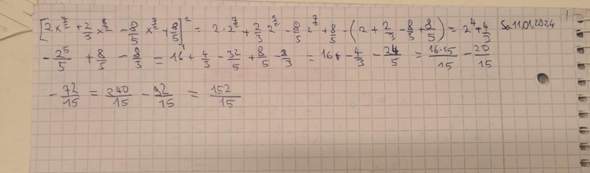 [2x^{7/2} + 2/3 x^{9/2} - 8/5 x^{5/2} + 8/5]^2 = 2·2^{7/2} + 2/3 2^{9/2} - 8/5 2^{7/2} + 8/5 - (2 + 2/3 - 8/5 + 8/5) = 2^4 + 4/3 So 11.01.2024
- 2^5/5 + 8/5 - 8/3 = 16 + 4/3 - 32/5 + 8/5 - 8/3 = 16 - 4/3 - 24/5 = 16·15/15 - 20/15
- 72/15 = 240/15 - 92/15 = 152/15